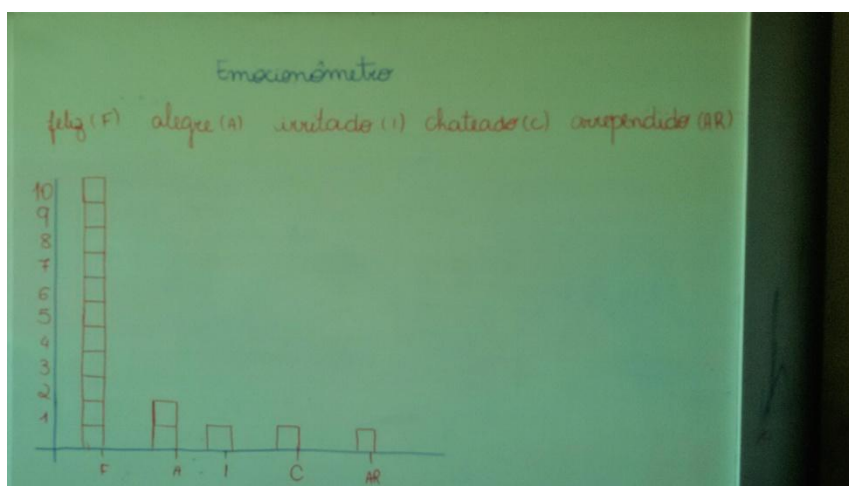 Emocionômetro
feliz (F) alegre (A) irritado (I) chateado (C) arrependido (AR)
10
9
8
7
6
5
4
3
2
1
F A I C AR